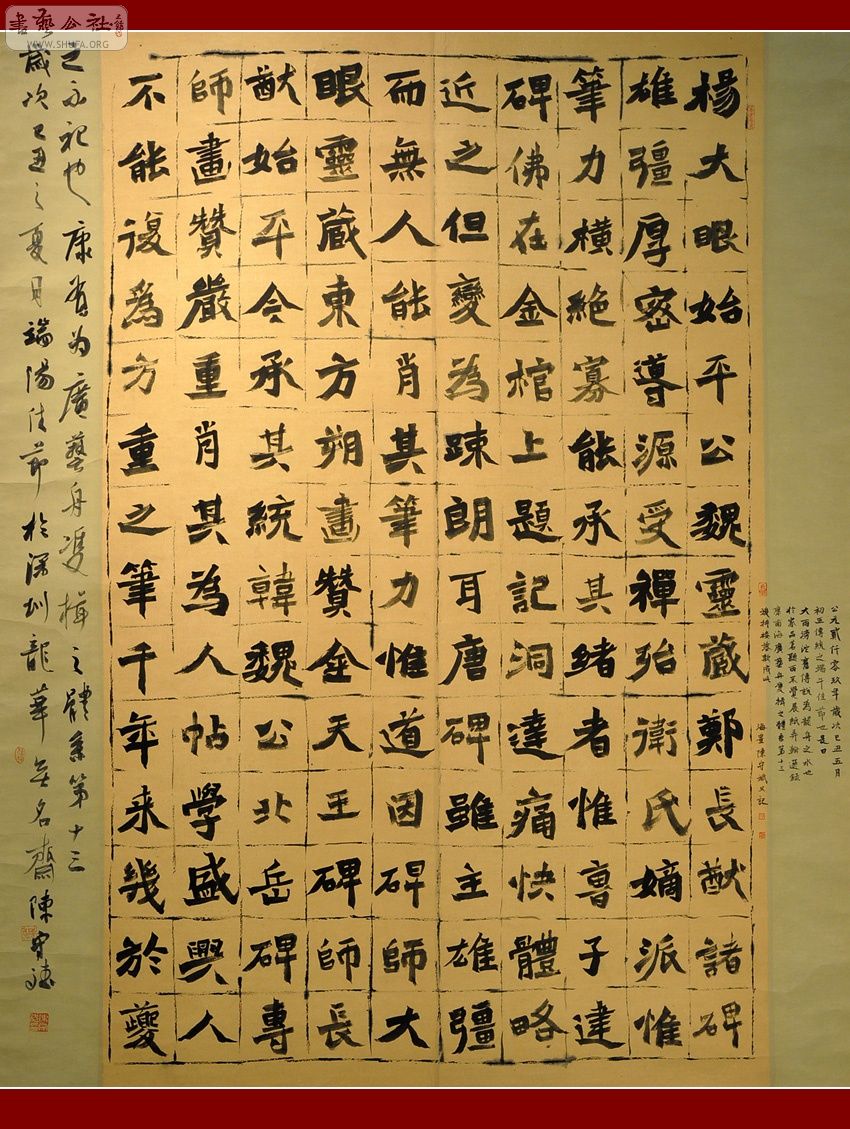 楊大眼始平公魏靈藏鄭長猷諸碑
雄彊厚密導源受禪殆衛氏嫡派惟
筆力橫絕寡能承其緒者惟曹子建
碑佛在金棺上題記洞達痛快體略
近之但變為疎朗耳唐碑雖主雄彊
而無人能肖其筆力惟道因碑師大
眼靈藏東方朔畫贊金天王碑師長
猷始平令承其統韓魏公北岳碑專
師畫贊嚴重肖其為人帖學盛興人
不能復為方重之筆千年來幾於夔
之不祀也康有為廣藝舟雙楫之體系第十三
歲次己丑之夏月端陽佳節於深圳龍華無名齋陳守
公元貳仟零玖年歲次己丑五月
初五傳統之端午佳節也是日
書藝公社
WWW.SHUFA.ORG